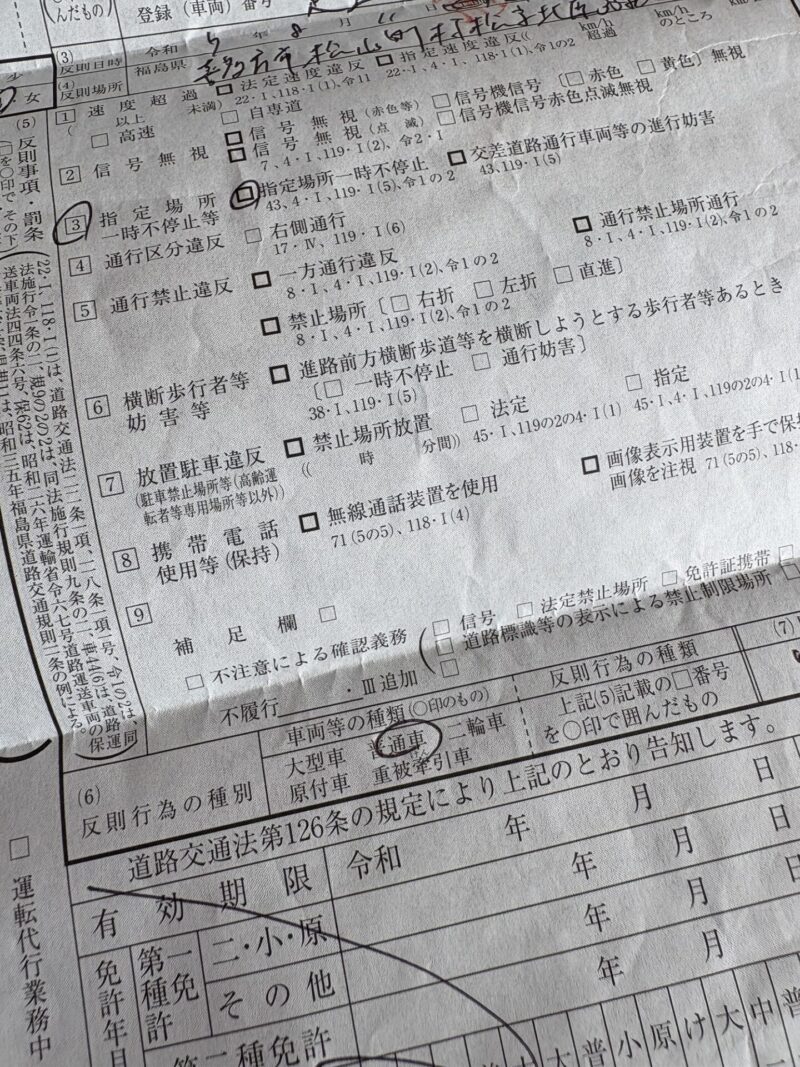 んだもの)
登録(車両)番号
(3)
反則日時
令和 5 年 8 月 11
(4)
反則場所
福島県 喜多方市 松山町村松字北原
少
女
(5)
反則事項・罰条
□を〇印で、その下
(22・Ⅰ、118・Ⅰ(1)は、道路交通法二二条一項、一一八条一項一号、令1の2は、同
法施行令一条の二、規9の2の2は、同法施行規則九条の二の二、車44(6)は、道路運
送車両法四四条六号、保62は、昭和二六年運輸省令六七号道路運送車両の保
は、昭和三五年福島県道路交通規則二条の例による。)
1 速度超過
( 以上 未満)
□ 法定速度違反
22・Ⅰ、118・Ⅰ(1)、令11
□ 指定速度違反((
22・Ⅰ、4・Ⅰ、118・Ⅰ(1)、令1の2
km/h
超過
km/h
のところ
□ 高速 □ 自専道
2 信号無視
□ 信号無視(赤色等)
□ 信号無視(点滅)
7、4・Ⅰ、119・Ⅰ(2)、令2・Ⅰ
□ 信号機信号 (□ 赤色 □ 黄色) 無視
□ 信号機信号赤色点滅無視
3 指定場所
一時不停止等
□ 指定場所一時不停止
43、4・Ⅰ、119・Ⅰ(5)、令1の2
□ 交差道路通行車両等の進行妨害
43、119・Ⅰ(5)
4 通行区分違反
□ 右側通行
17・Ⅳ、119・Ⅰ(6)
5 通行禁止違反
□ 一方通行違反
8・Ⅰ、4・Ⅰ、119・Ⅰ(2)、令1の2
□ 通行禁止場所通行
8・Ⅰ、4・Ⅰ、119・Ⅰ(2)、令1の2
□ 禁止場所〔□ 右折 □ 左折 □ 直進〕
8・Ⅰ、4・Ⅰ、119・Ⅰ(2)、令1の2
6 横断歩行者等
妨害等
□ 進路前方横断歩道等を横断しようとする歩行者等あるとき
〔□ 一時不停止 □ 通行妨害〕
38・Ⅰ、119・Ⅰ(5)
7 放置駐車違反
(駐車禁止場所等(高齢運
転者等専用場所等以外))
□ 禁止場所放置
(( 時 分間))
□ 法定
45・Ⅰ、119の2の4・Ⅰ(1)
□ 指定
45・Ⅰ、4・Ⅰ、119の2の4・Ⅰ(1
8 携帯電話
使用等(保持)
□ 無線通話装置を使用
71(5の5)、118・Ⅰ(4)
□ 画像表示用装置を手で保
画像を注視 71(5の5)、118・
9
補足欄 □
□ 不注意による確認義務
不履行 ・Ⅲ追加
□ 信号 □ 法定禁止場所 □ 免許証携帯 □
□ 道路標識等の表示による禁止制限場所 □
□
(6)
反則行為の種別
車両等の種類(〇印のもの)
大型車 普通車 二輪車
原付車 重被牽引車
けん
反則行為の種類
上記(5)記載の□番号
を〇印で囲んだもの
(7)
道路交通法第126条の規定により上記のとおり告知します。
有効期限
令和 年 月 日
免許年月
第一種免許
二・小・原
年 月 日
その他
年 月
第二種免許
年 月
大 普 小 原 け 大 中 普
□ 運転代行業務中